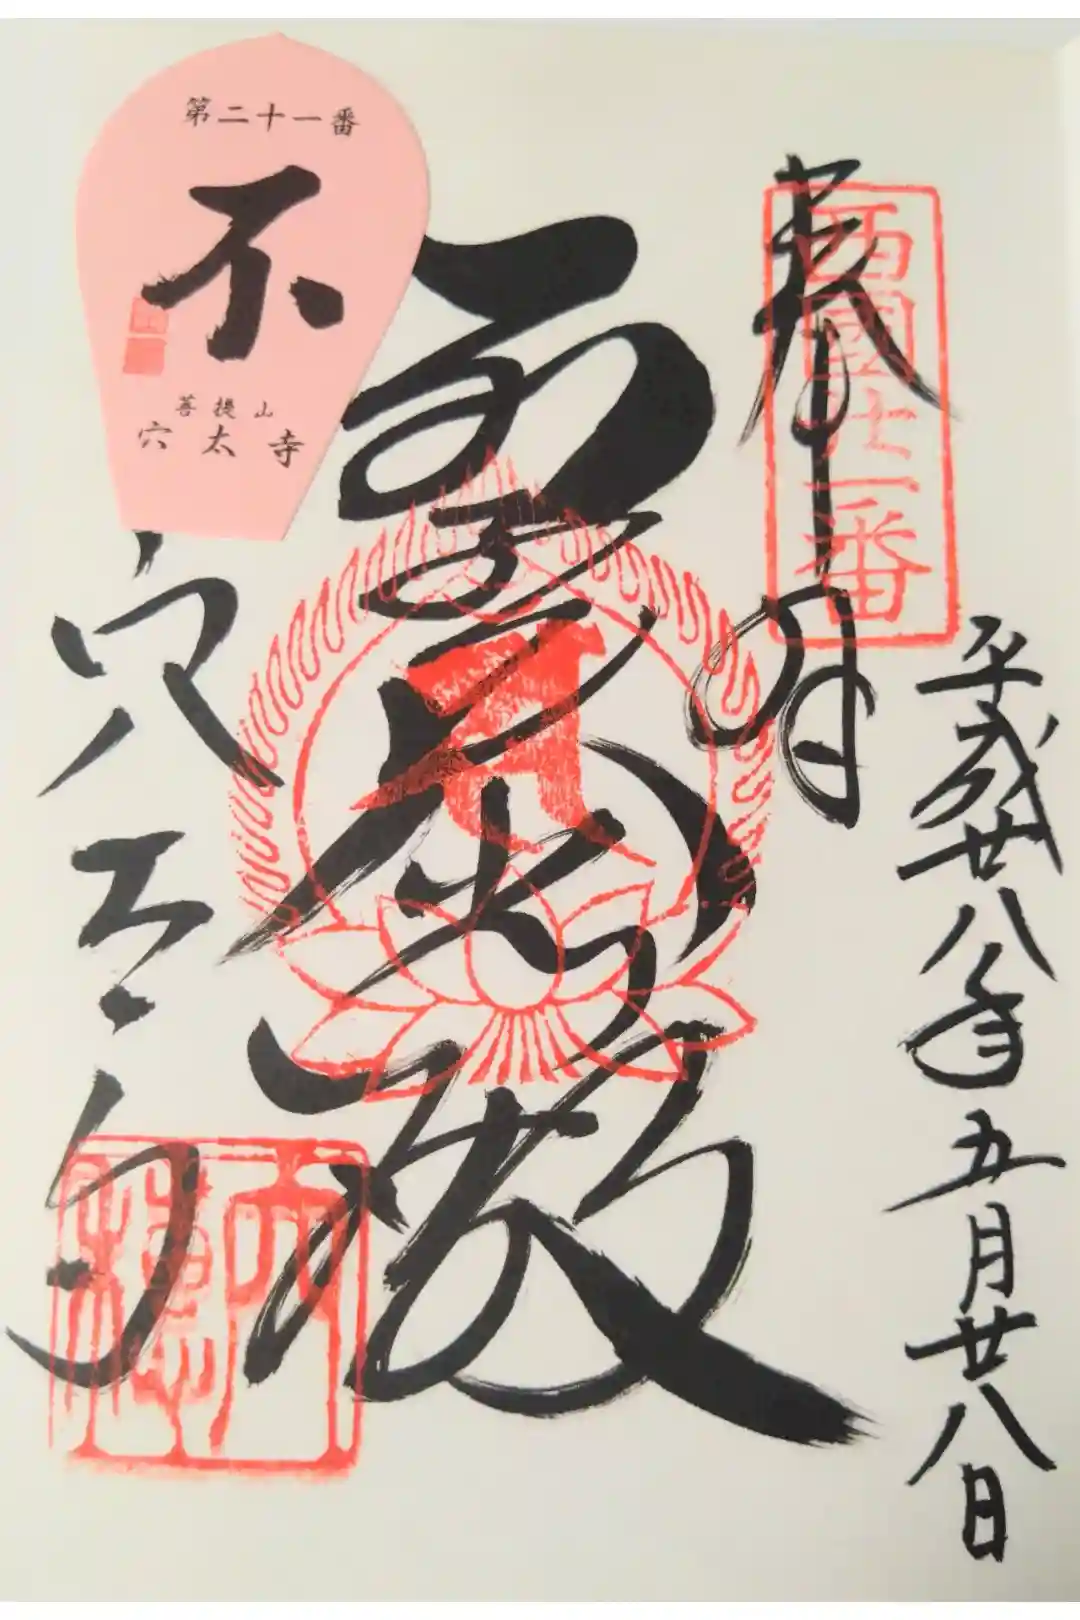 平成廿八年五月廿八日
奉拝
西國廿一番
聖大悲殿
穴太寺
第二十一番
不
菩提山
穴太寺